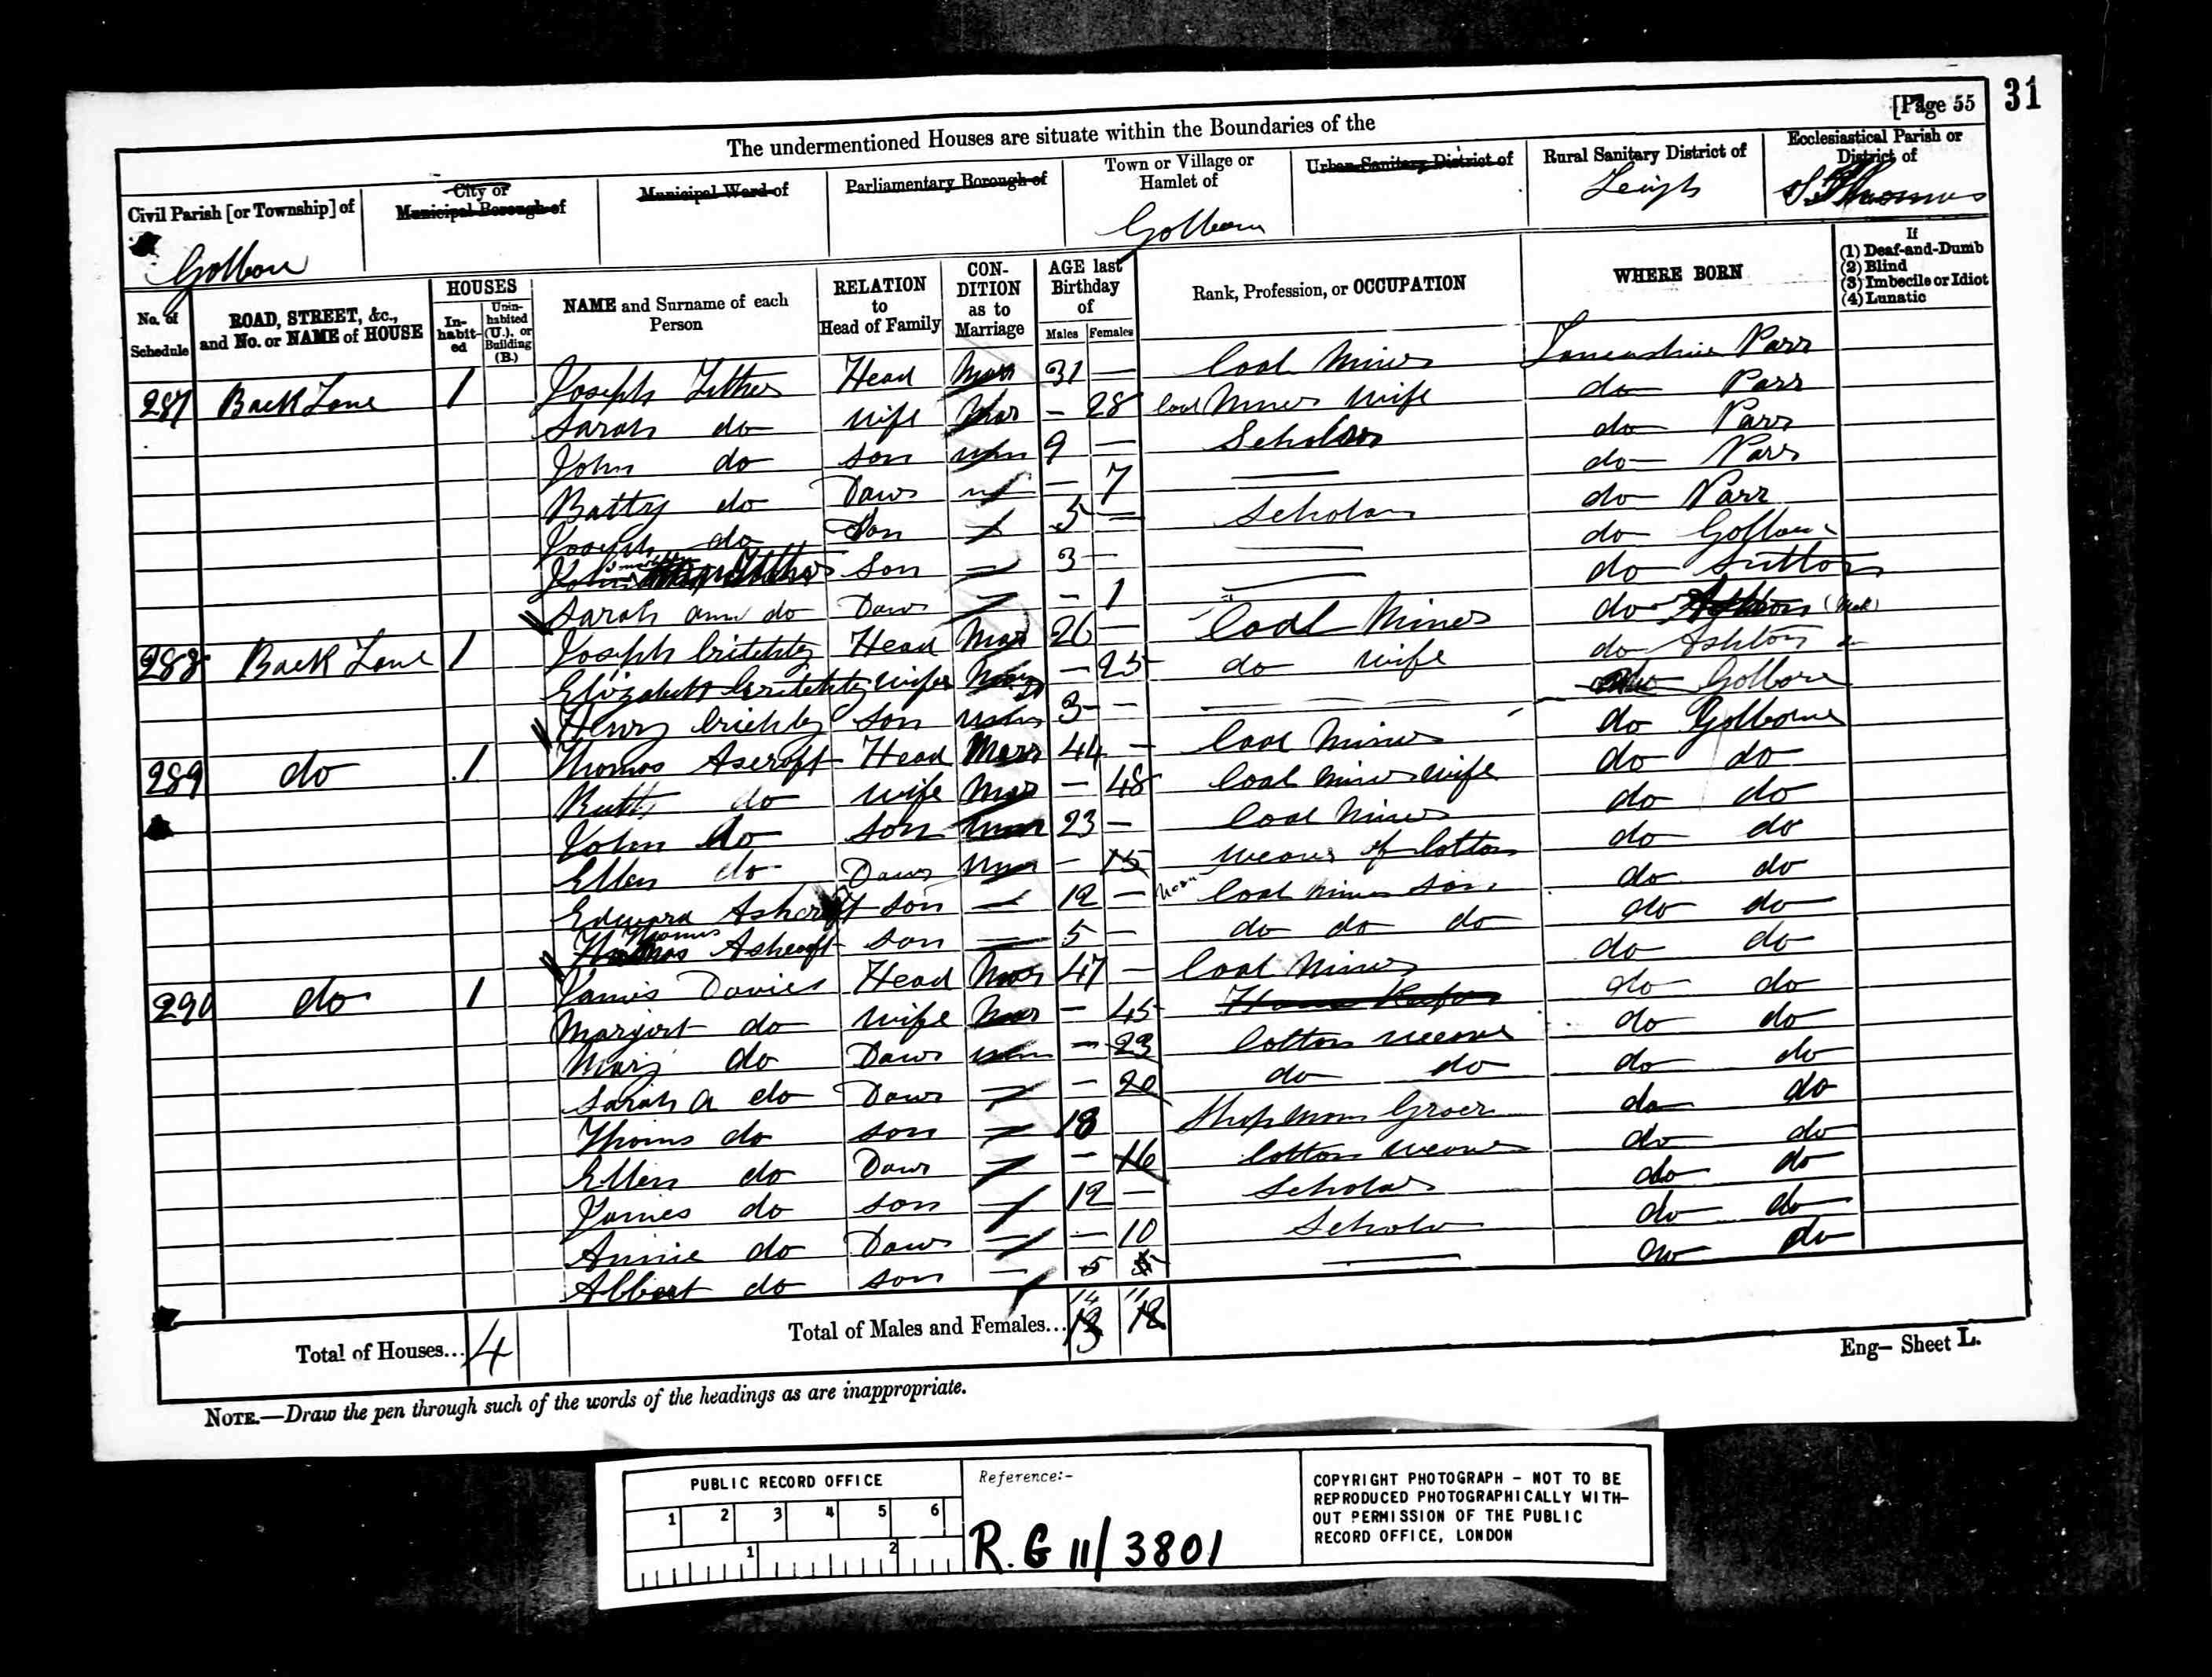 [Page 55
31
The undermentioned Houses are situate within the Boundaries of the
Civil Parish [or Township] of
City or Municipal Borough of
Municipal Ward of
Parliamentary Borough of
Town or Village or Hamlet of
Urban Sanitary District of
Rural Sanitary District of
Ecclesiastical Parish or District of
Golborne Leigh St Thomas
No. of Schedule
ROAD, STREET, &c., and No. or NAME of HOUSE
HOUSES
In-habit-ed
Unin-habited (U.), or Building (B.)
NAME and Surname of each Person
RELATION to Head of Family
CON-DITION as to Marriage
AGE last Birthday of
Males Females
Rank, Profession, or OCCUPATION
WHERE BORN
If
(1) Deaf-and-Dumb
(2) Blind
(3) Imbecile or Idiot
(4) Lunatic
287 Back Lane 1 Joseph Head Mar 31 — Coal Miner Lancashire Parr
Sarah do wife Mar — 28 Coal Miners wife do Parr
John do son unm 9 — Scholar do Parr
Battry do Daur — 7 — do Parr
Joseph do Son 5 — Scholar do Parr
Son 3 — do Golborne
Sarah ann do Daur — 1 do Sutton
288 Back Lane 1 Joseph Critchley Head Mar 26 — Coal Miner do
Elizabeth Critchley wife Mar — 25 do wife do Ashton
Henry Crichley son unm 3 — do Golbore
289 do 1 Thomas Ascroft Head Marr 44 — Coal Miner do Golborne
Ruth do wife Mar — 48 Coal miners wife do do
John do son unm 23 — Coal Miner do do
Ellen do Daur unm — 15 Weaver of Cotton do do
Edward Ashcroft son 12 — Coal miners son do do
Thomas Ashcroft son 5 — do do do do do
290 do 1 James Davies Head Mar 47 — Coal Miner do do
Margirt do wife Mar — 45 House Keeper do do
Mary do Daur unm — 23 Cotton weaver do do
Sarah A do Daur — 20 do do do do
Thoms do son 18 Shop man Grocer do do
Ellen do Daur — 16 Cotton weaver do do
James do son 12 — Scholar do do
Annie do Daur — 10 Scholar do do
Albert do son 5 — do do
Total of Houses... 4
Total of Males and Females... 14 11
13 12
Eng— Sheet L.
NOTE.—Draw the pen through such of the words of the headings as are inappropriate.
PUBLIC RECORD OFFICE
1 2 3 4 5 6
1 2
Reference:-
R.G 11/3801
COPYRIGHT PHOTOGRAPH - NOT TO BE
REPRODUCED PHOTOGRAPHICALLY WITH-
OUT PERMISSION OF THE PUBLIC
RECORD OFFICE, LONDON